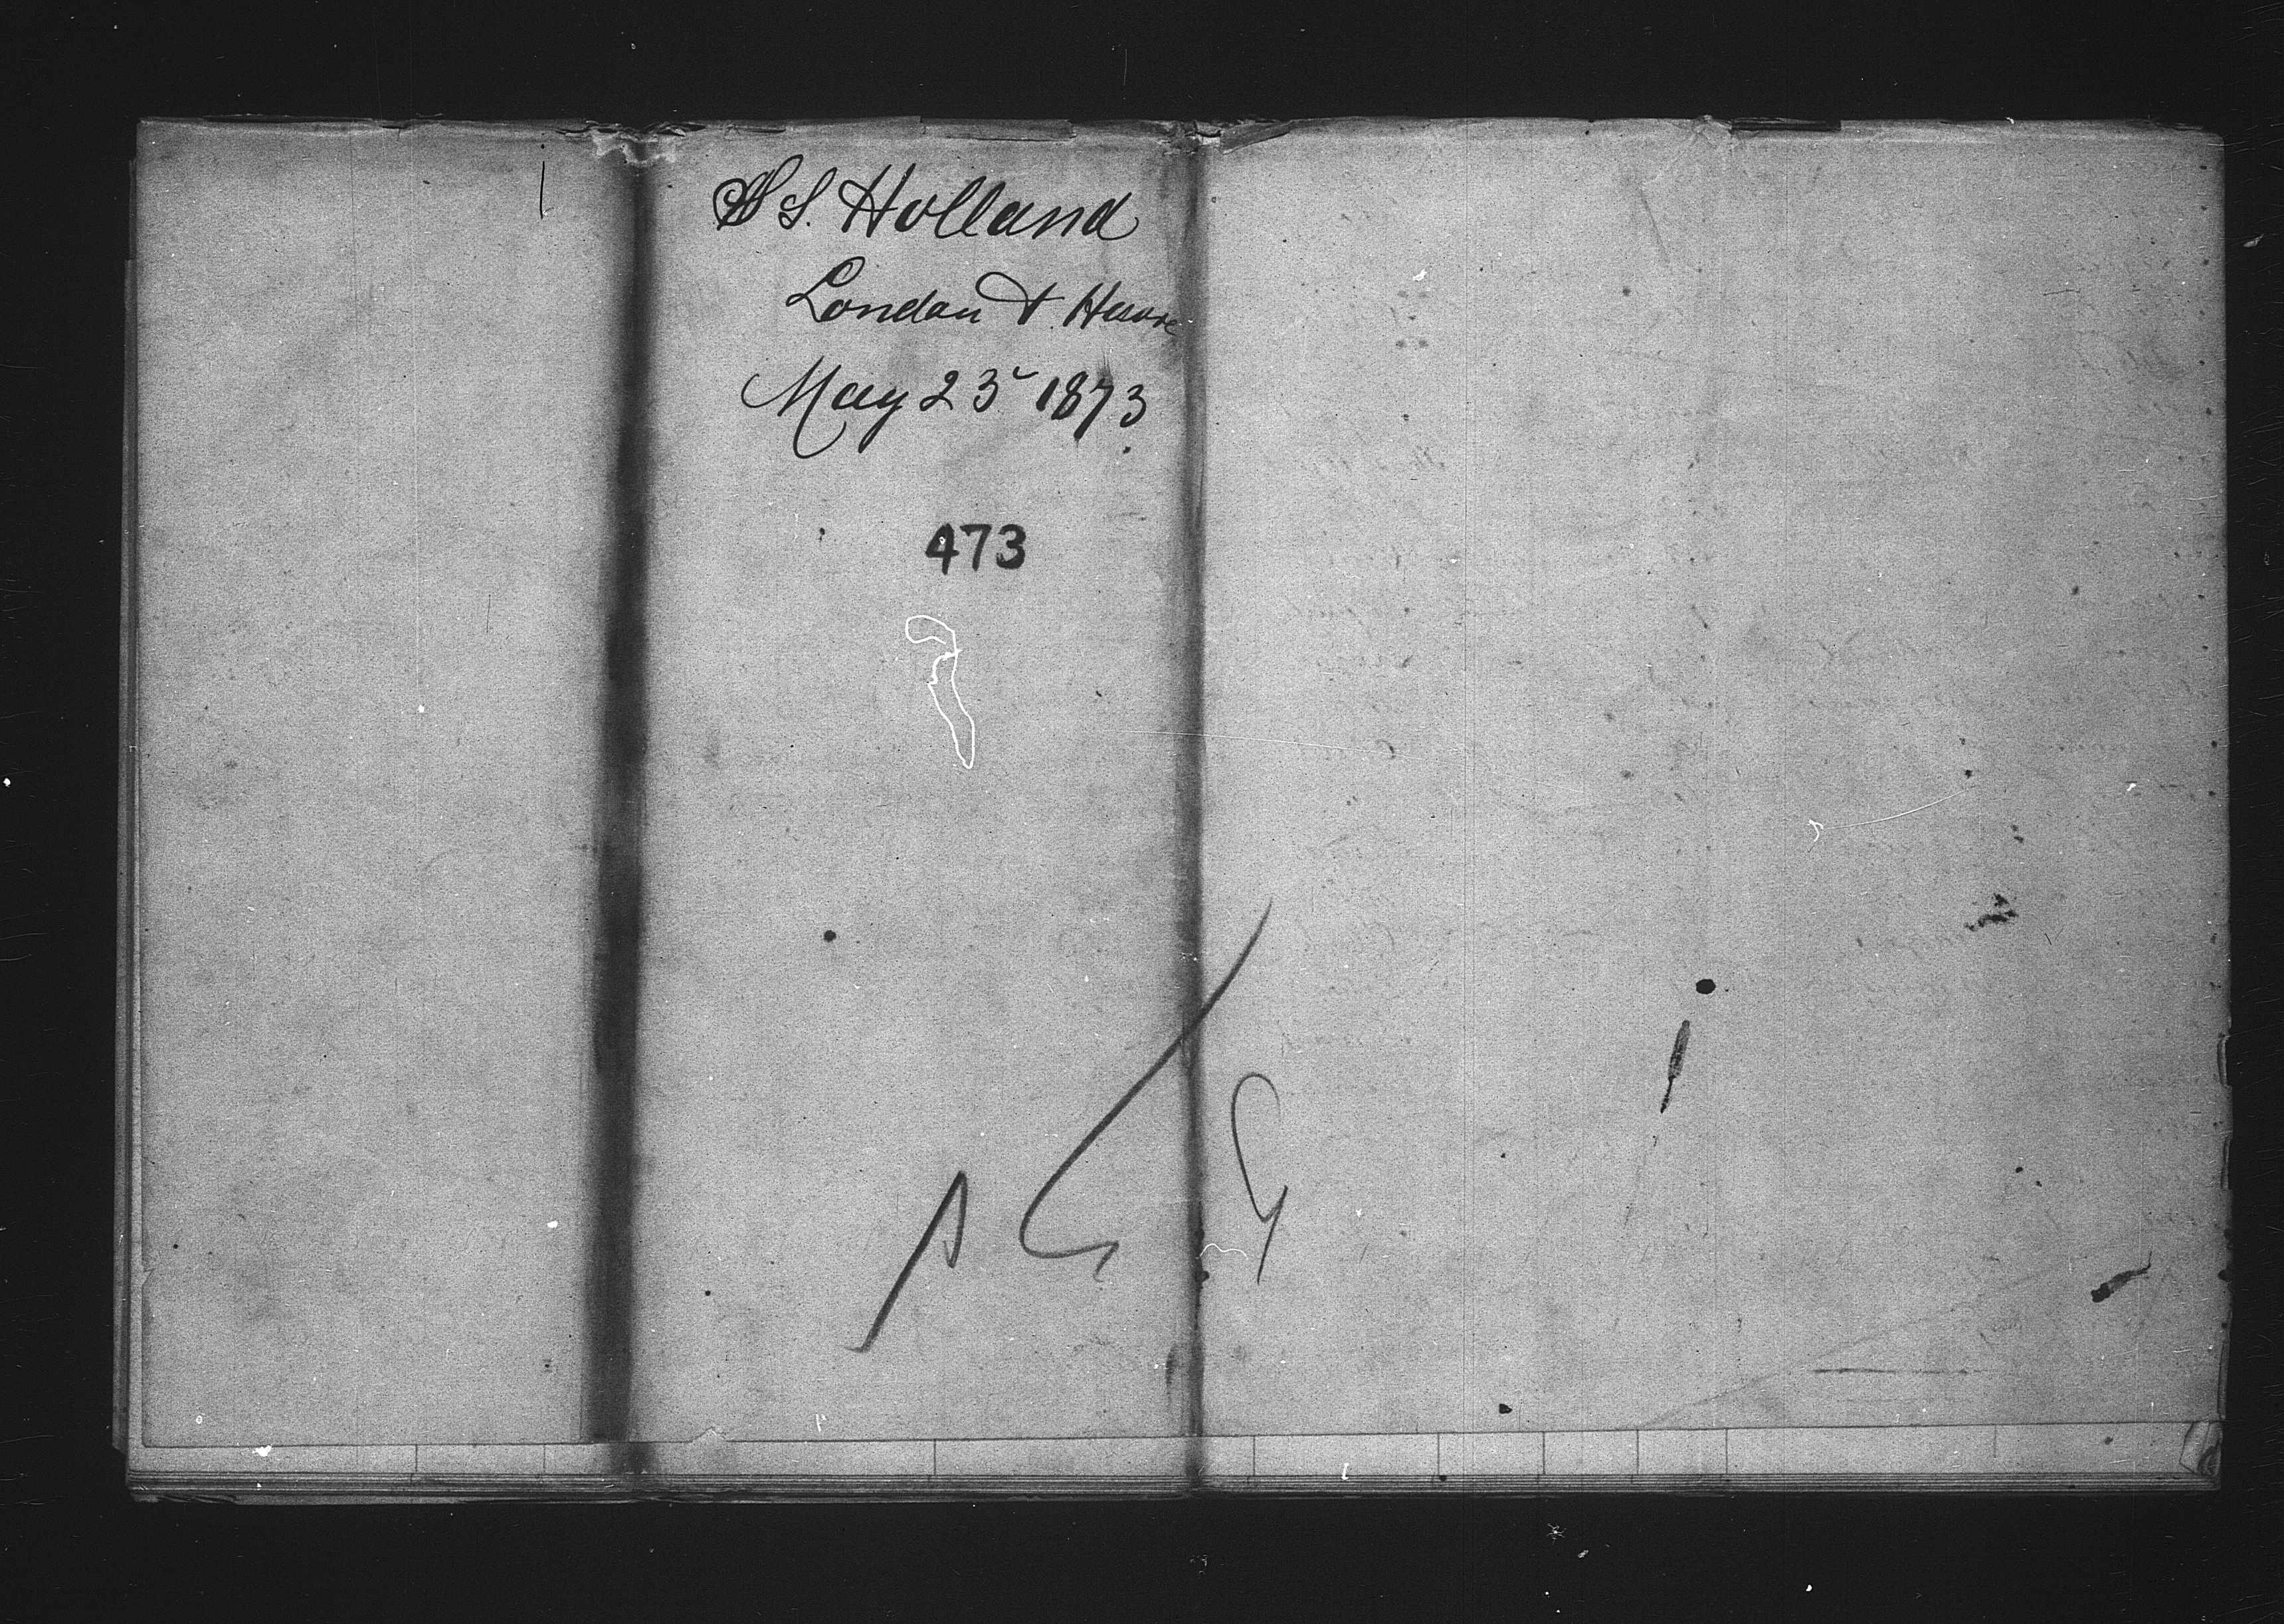 SS. Holland
London & Havre
May 23 1873.
473